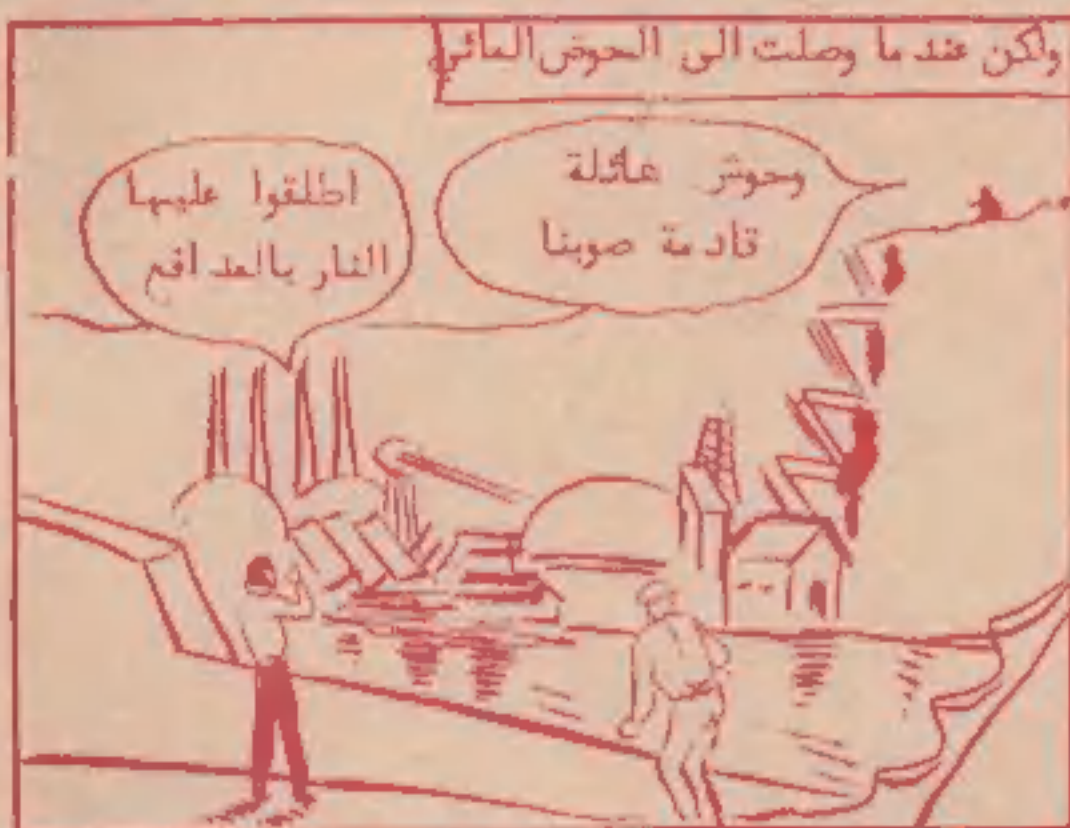 ولكن عندما وصلت الى الحوض المائي
وحوش هائلة
قادمة صوبنا
اطلقوا عليها
النار بالمدافع